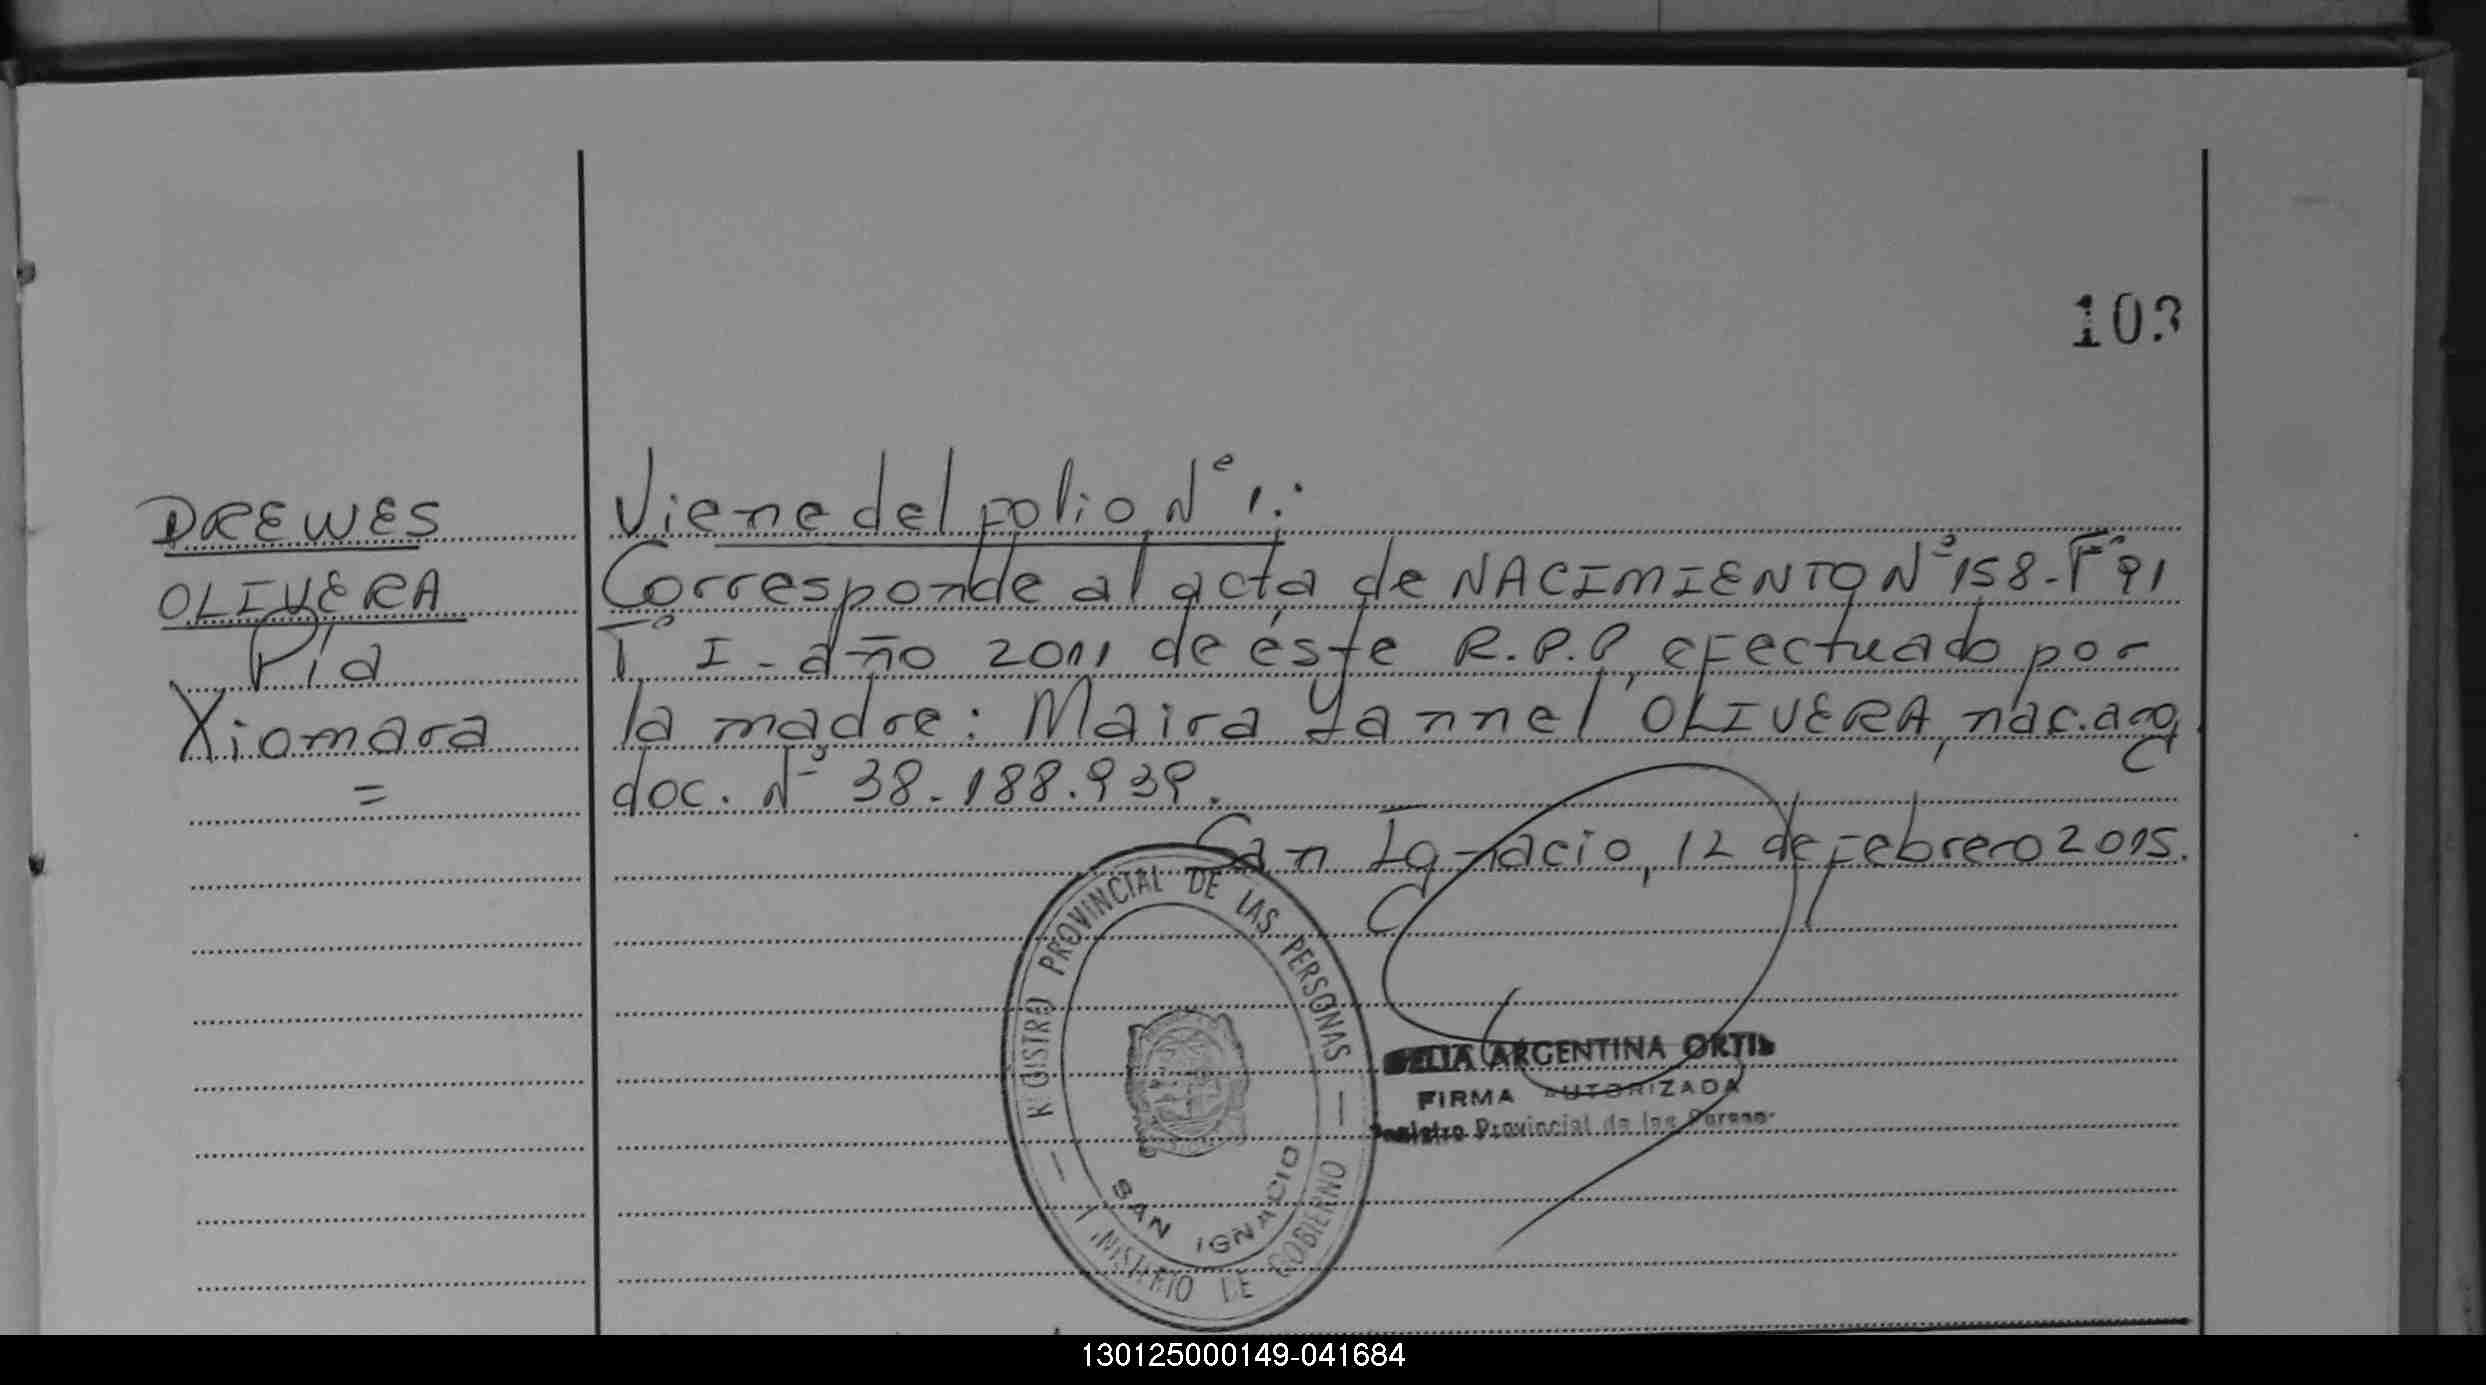 103
DREWES
OLIVERA
Pía
Xiomara
=
Viene del folio Nº 1:
Corresponde al acta de NACIMIENTO Nº 158-Fº 91
Tº I - año 2011 de éste R.P.P, efectuado por
la madre: Maira Yannel OLIVERA, nac. arg,
doc. Nº 38.188.939.
San Ignacio, 12 de febrero 2015.
REGISTRO PROVINCIAL DE LAS PERSONAS
MINISTERIO DE GOBIERNO
SAN IGNACIO
ARGENTINA
FIRMA AUTORIZADA
Registro Provincial de las Person
130125000149-041684